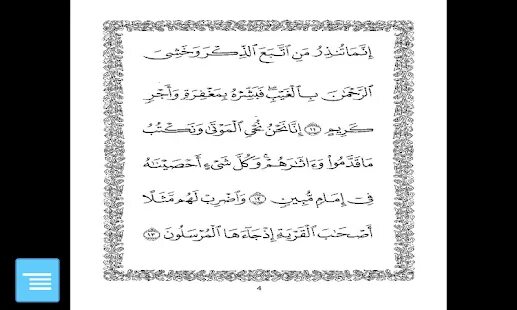 إِنَّمَا تُنذِرُ مَنِ اتَّبَعَ الذِّكْرَ وَخَشِيَ
الرَّحْمَٰنَ بِالْغَيْبِ ۖ فَبَشِّرْهُ بِمَغْفِرَةٍ وَأَجْرٍ
كَرِيمٍ ۝١١ إِنَّا نَحْنُ نُحْيِ الْمَوْتَىٰ وَنَكْتُبُ
مَا قَدَّمُوا وَءَاثَارَهُمْ ۚ وَكُلَّ شَيْءٍ أَحْصَيْنَاهُ
فِي إِمَامٍ مُّبِينٍ ۝١٢ وَاضْرِبْ لَهُم مَّثَلًا
أَصْحَابَ الْقَرْيَةِ إِذْ جَاءَهَا الْمُرْسَلُونَ ۝١٣
4